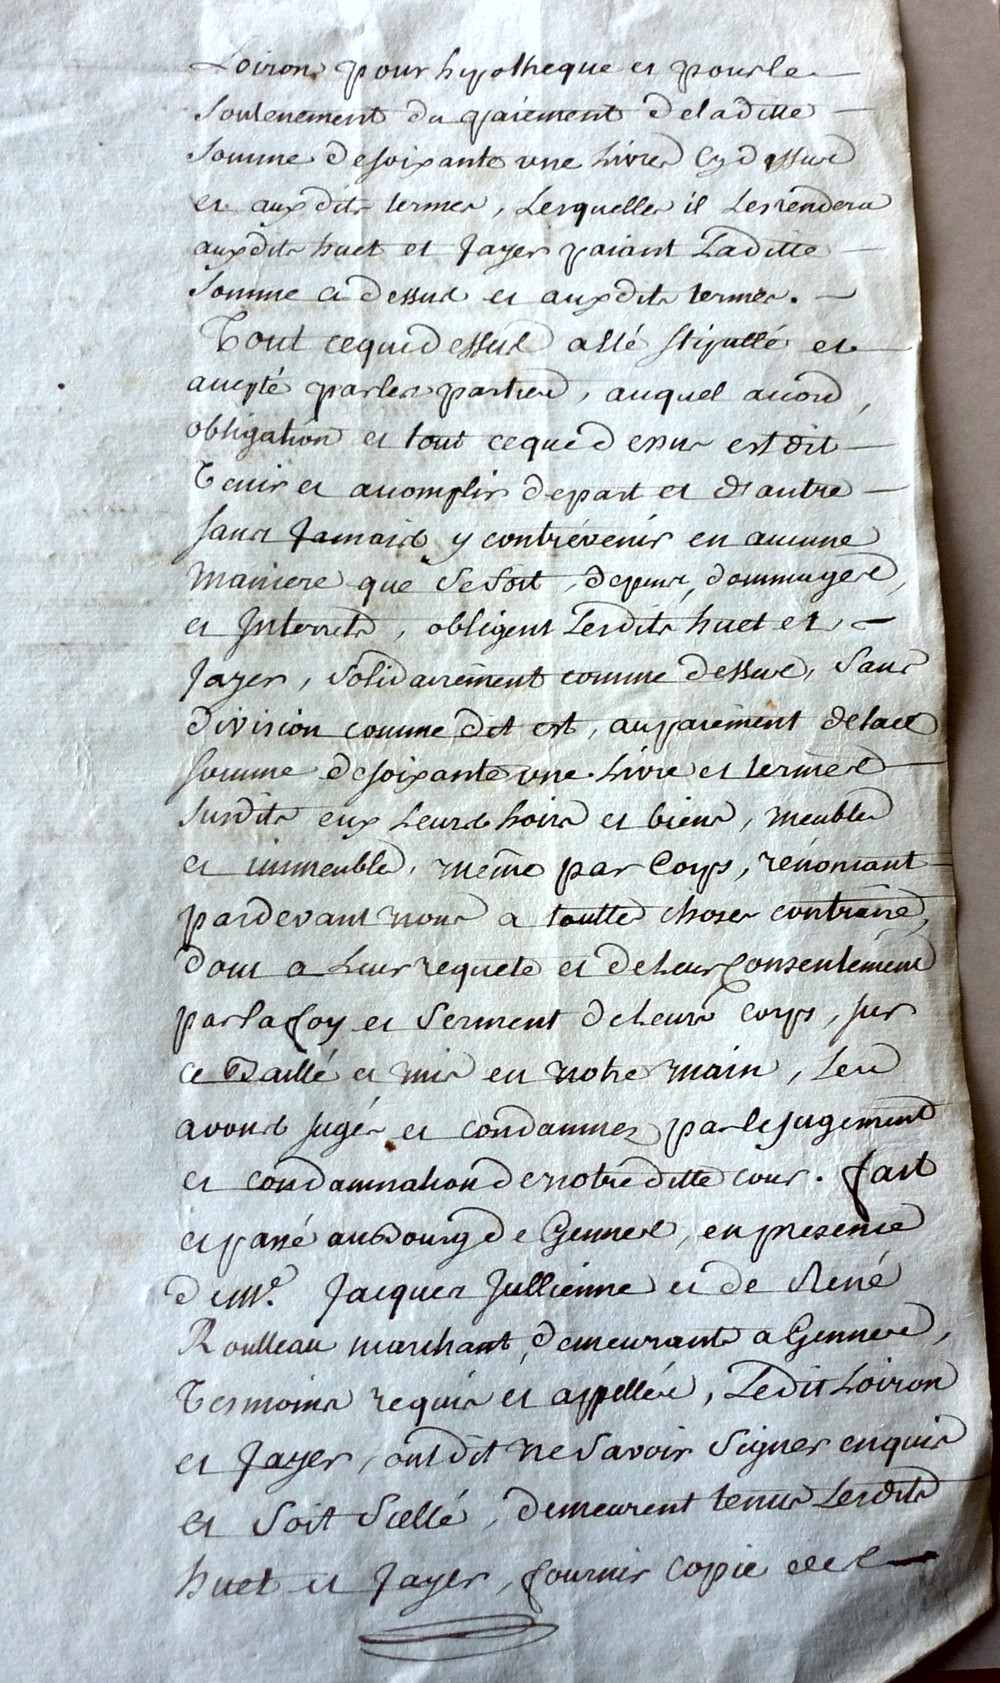 Loiron pour hypotheque et pour le
soutenement du paiement de laditte
somme de soixante une Livres cy dessus
et aux dits termes, Lesquelles il Les rendera
aux dits huet et Jayer paiant Laditte
somme ci dessus et aux dits termes.
Tout ce que dessus a Esté stipullé et
accepté par les parties, auquel acord,
obligation et tout ce que dessus est dit
Tenir et accomplir de part et d'autre
sans Jamais y contrevenir en aucune
maniere que se soit, dommages,
et Interrets, obligent Lesdits huet et
Jayer, solidairement comme dessus, sans
division comme dit est, au paiement de lad
somme de soixante une Livre et termes
susdits eux Leurs hoirs et biens, meubles
et immeubles, même par Corps, rénoncant
pardevant nous a touttes choses contraires,
dont a Leur requete et de Leur Consentement
par la foy et serment de Leurs corps, sur
ce Baillé et mis en notre main, Les
avons jugés et condamnez par le jugement
et condamnation de notre ditte cour. fait
et passé au Bourg de Gennes, en presence
de Me. Jacques Jullienne et de René
Roulleau marchant, demeurants a Gennes,
Tesmoins requis et appellés, Ledit Loiron
et Jayer, ont dit ne savoir signer enquis
et soit scellé, demeurent tenus Lesdits
huet et Jayer, fournir copie des